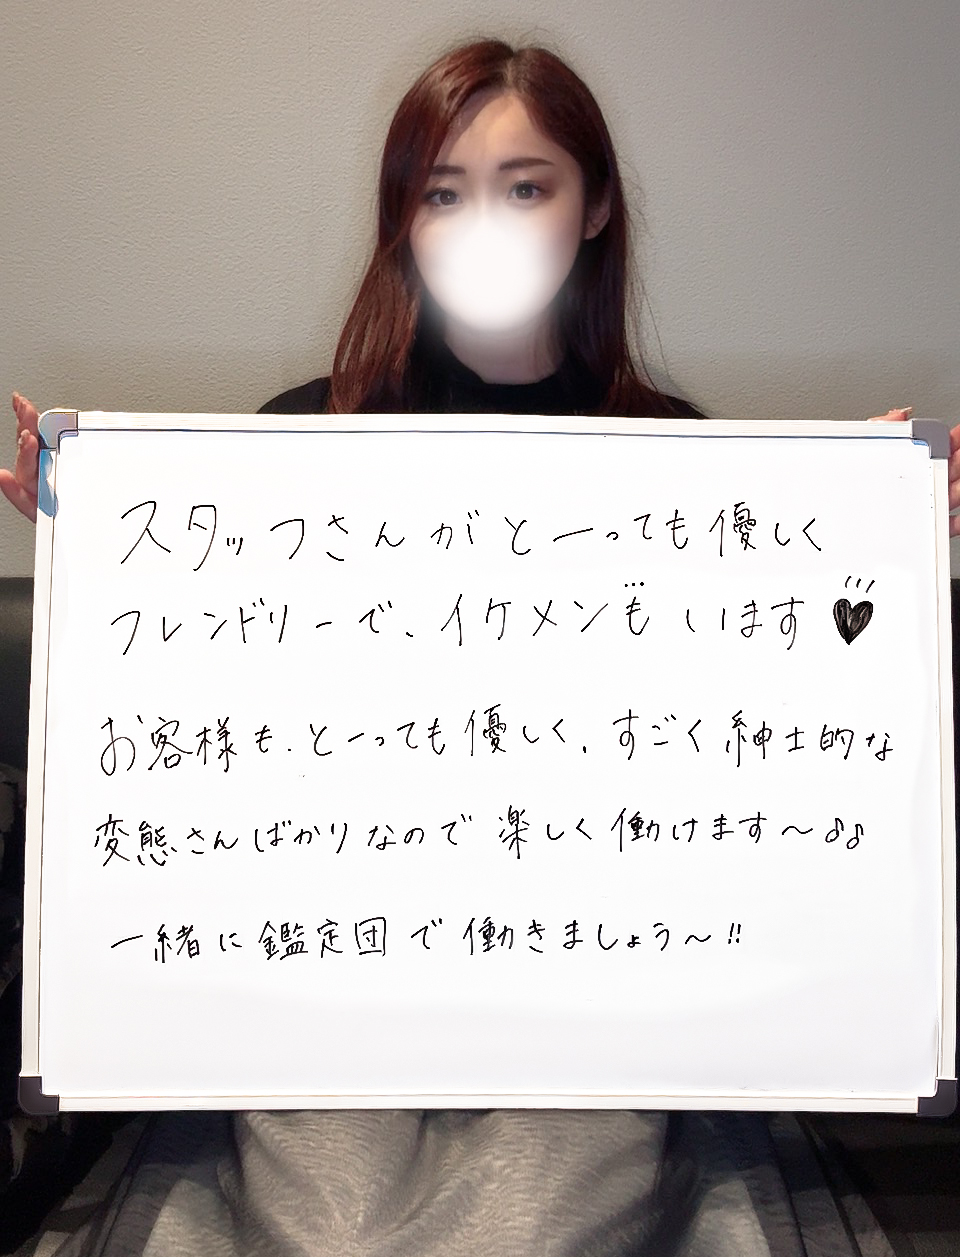 スタッフさんがとーっても優しく
フレンドリーで、イケメンもいます♥
お客様も、とーっても優しく、すごく紳士的な
変態さんばかりなので楽しく働けます～♪♪
一緒に鑑定団で働きましょう～!!